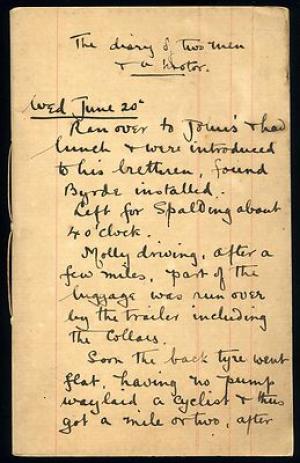 The diary of two men
& a motor.
Wed June 20th
Ran over to & had
lunch & were introduced
to his brethren, found
Byrde installed.
Left for Spalding about
4 o'clock.
Molly driving, after a
few miles, part of the
luggage was run over
by the trailer including
the collars.
Soon the back tyre went
flat, having no pump
waylaid a cyclist & thus
got a mile or two, after